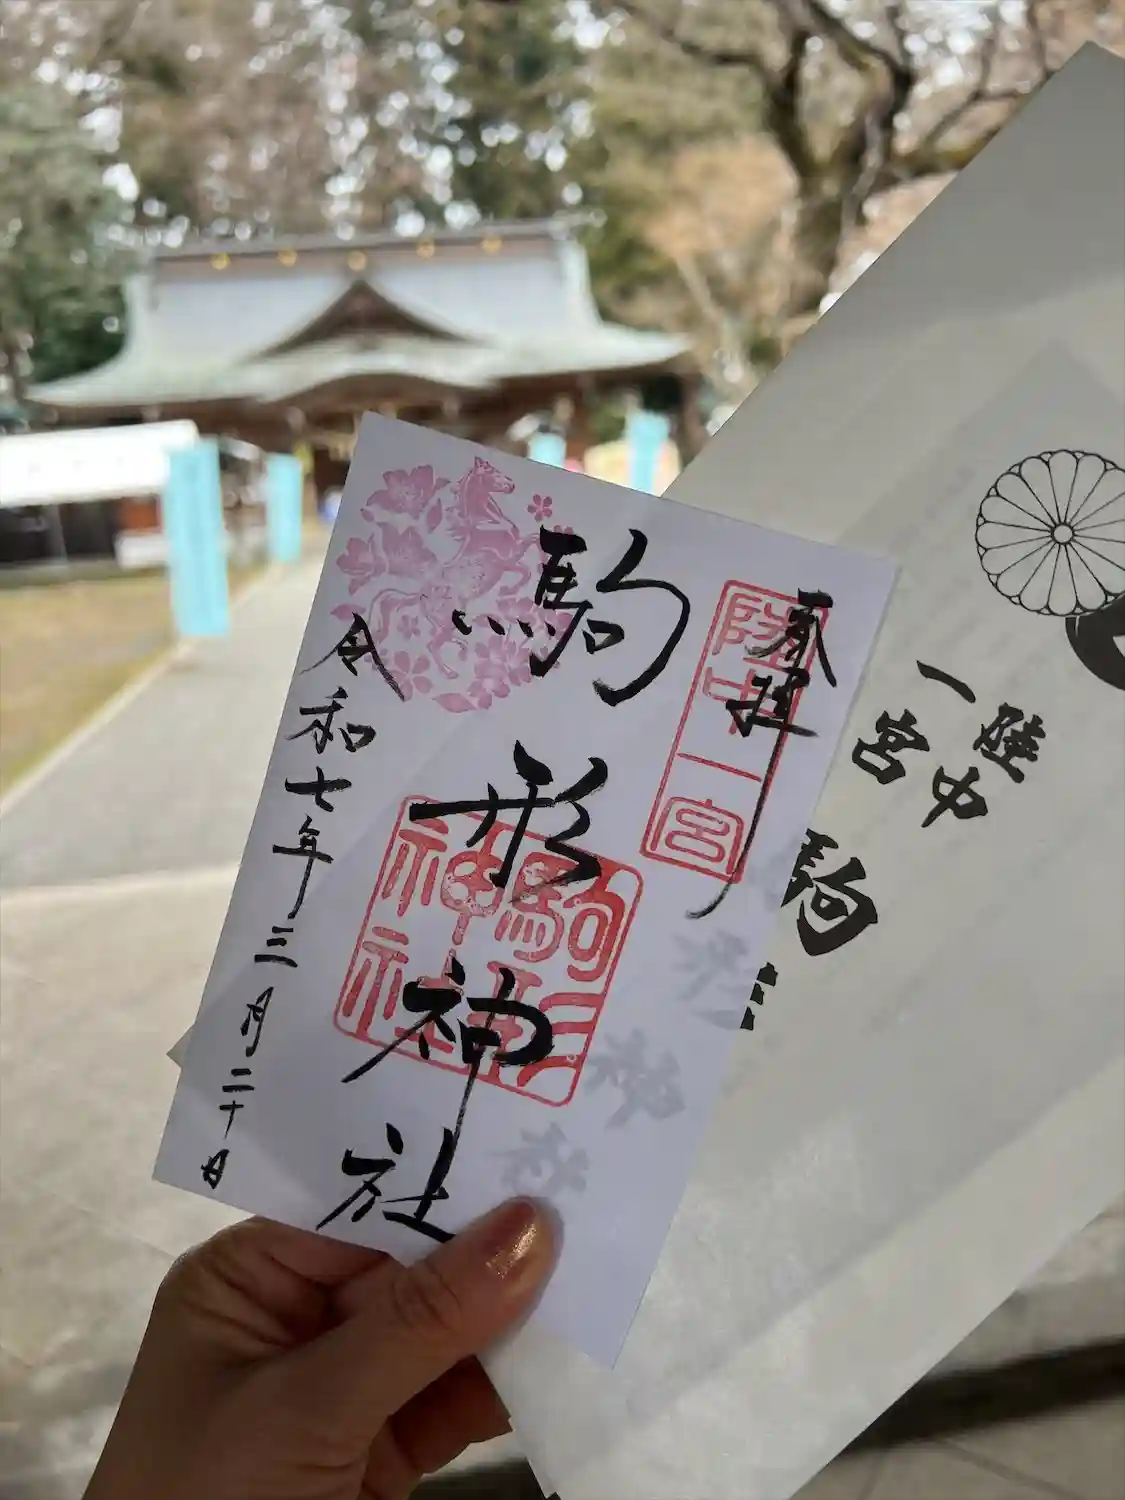 奉拝
陸中一宮
駒形神社
駒形神社
令和七年三月二十日
陸中
一宮
駒